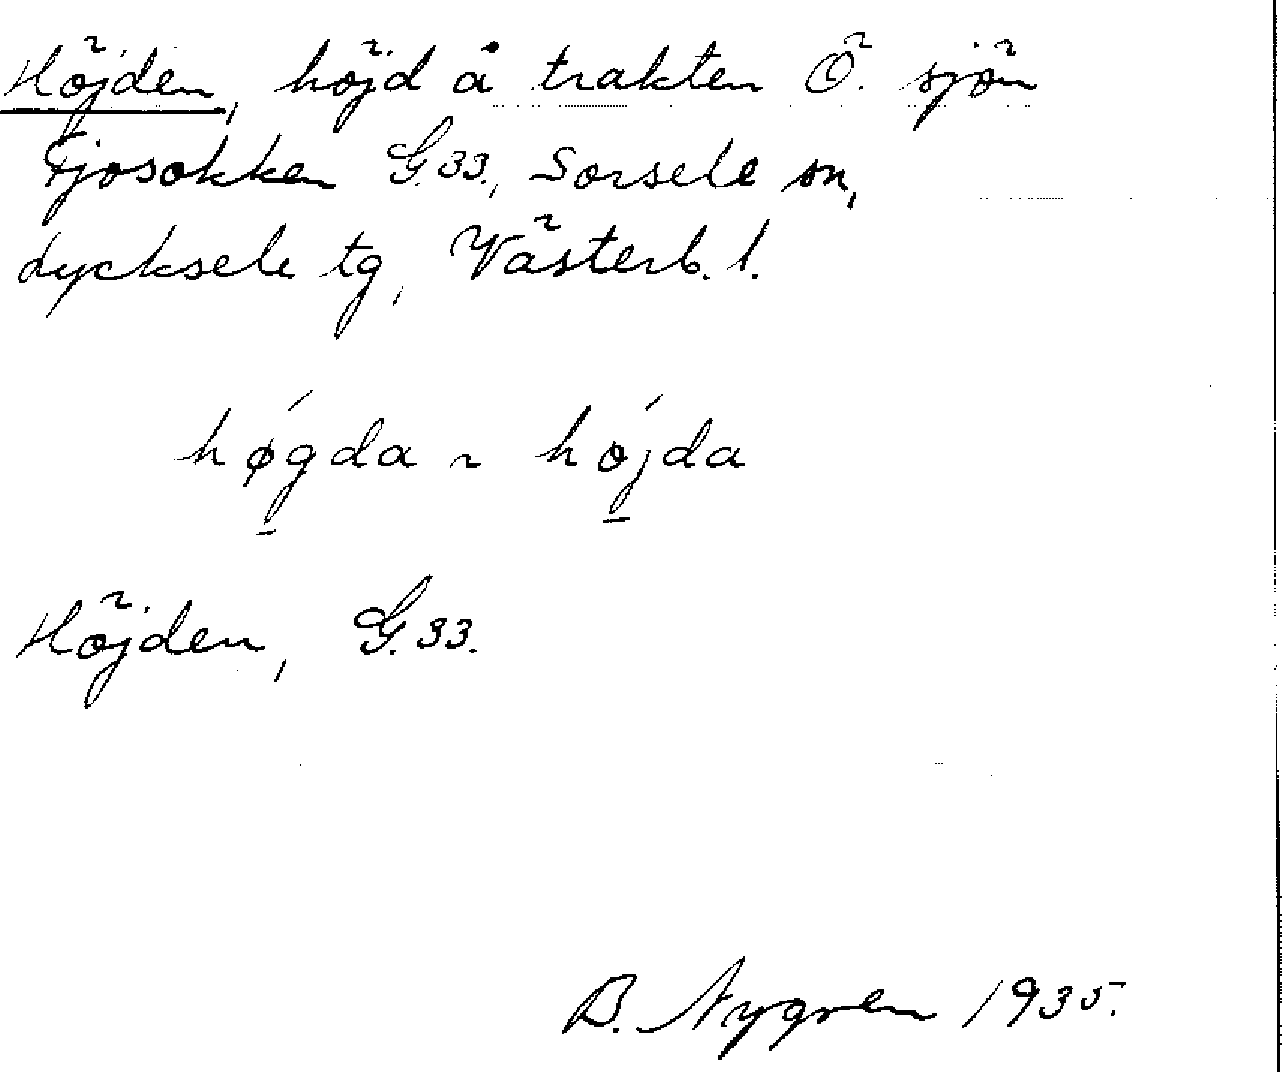 Höjden, höjd å trakten Ö. sjön
Fjosokken G.33., Sorsele sn,
Lycksele tg, Västerb. l.
høgda ~ höjda
Höjden, G.33.
B. Nygren 1935.